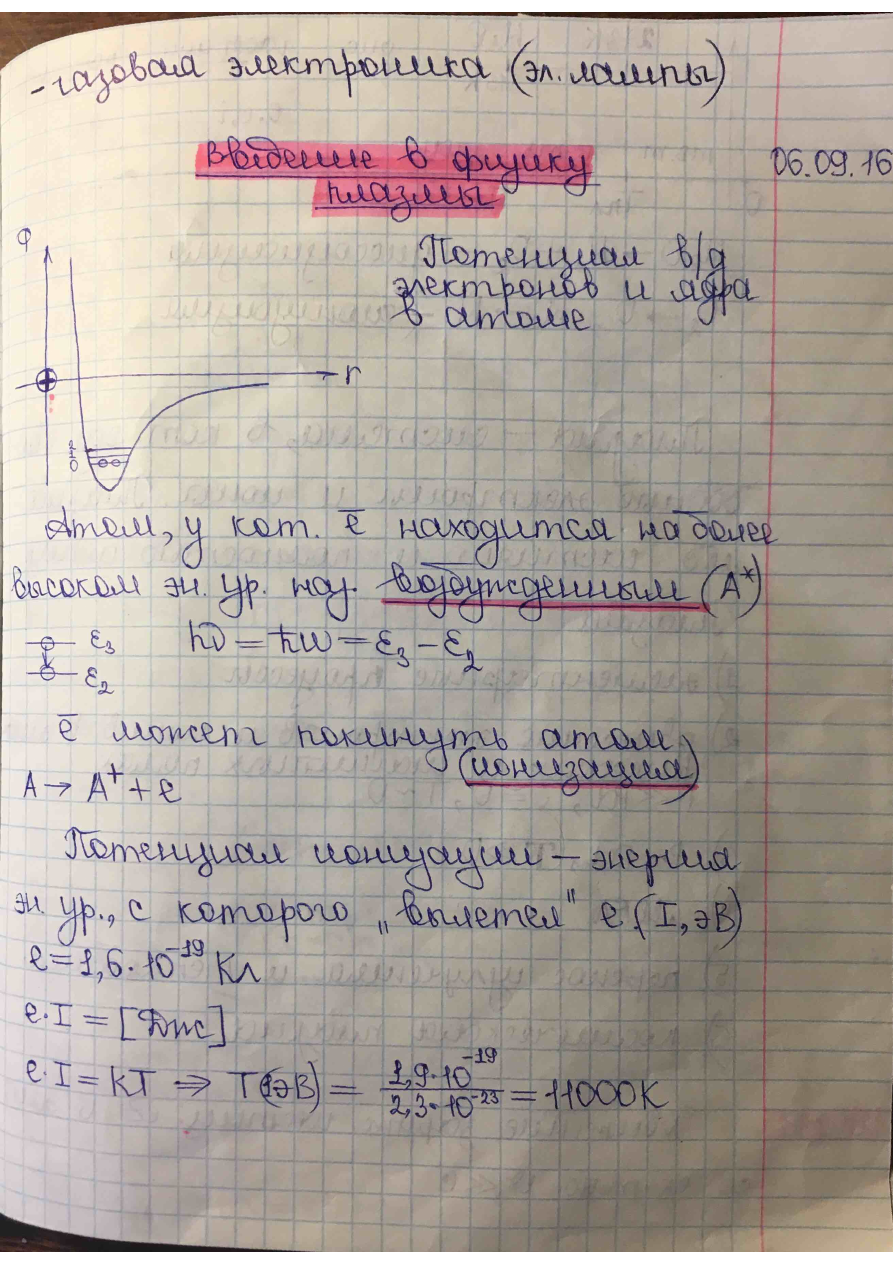 - газовая электроника (эл. лампы)
Введение в физику
плазмы
06.09.16
φ
Потенциал в/д
электронов и ядра
в атоме
r
Атом, у кот. ē находится на более
высоком эн. ур. наз. возбужденным (A*)
ε₃
hν = ħω = ε₃ - ε₂
ε₂
ē может покинуть атом
(ионизация)
A → A⁺ + e
Потенциал ионизации – энергия
эн. ур., с которого „вылетел" e (I, эВ)
e = 1,6·10⁻¹⁹ Кл
e·I = [Дж]
e·I = kT ⇒ T(1эВ) = 1,9·10⁻¹⁹ / 2,3·10⁻²³ = 11000K